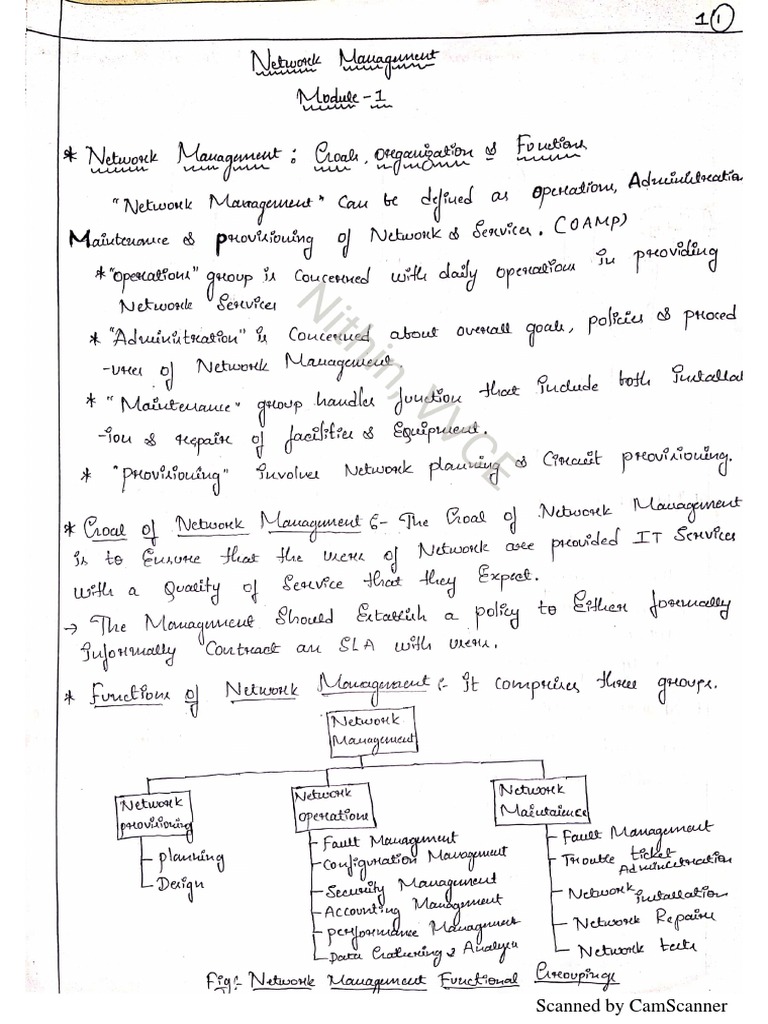 1 (1)
Network Management
Module - 1
* Network Management : Goals, organization & Functions
"Network Management" can be defined as operations, Administration
Maintenance & provisioning of Network & Services. (OAMP)
* "operations" group is concerned with daily operations in providing
Network Services
* "Administration" is concerned about overall goals, policies & proced
-ures of Network Management.
* "Maintenance" group handles function that include both Installat
-ion & repair of facilities & Equipment.
* "provisioning" involves Network planning & Circuit provisioning.
* Goal of Network Management :- The Goal of Network Management
is to Ensure that the users of Network are provided IT Services
with a Quality of Service that they Expect.
→ The Management Should Establish a policy to Either formally
Informally Contract an SLA with users.
* Functions of Network Management :- it comprises three groups.
Network
Management
Network
provisioning
planning
Design
Network
operations
Fault Management
Configuration Management
Security Management
Accounting Management
performance Management
Data Gathering & Analysis
Network
Maintainence
Fault Management
Trouble ticket
Administration
Network installation
Network Repairs
Network tests
Fig:- Network Management Functional Groupings
Nithin, VVCE
Scanned by CamScanner